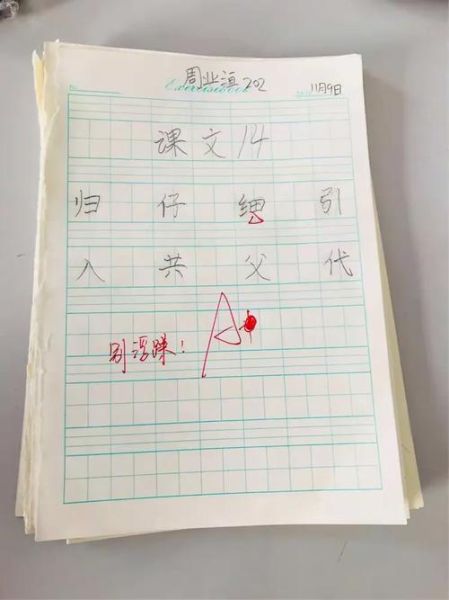 周业滇 202
Exercisebook
11月9日
课文14
归 仔 细 引
入 共 父 代
A
别浮躁!